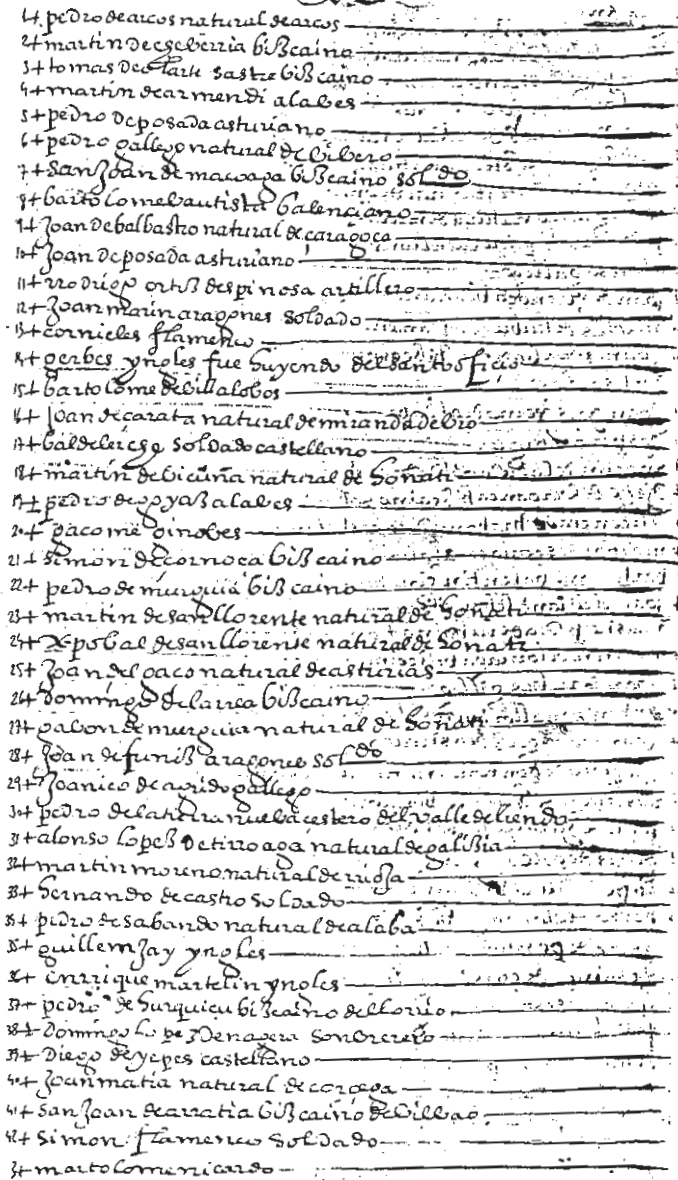 1+ pedro de arcos natural de arcos
2+ martin de echeberria bißcaino
3+ tomas de olarte sastre bißcaino
4+ martin de armendi alabes
5+ pedro de posada asturiano
6+ pedro gallego natural de bibero
7+ San Joan de macoaga bißcaino soldo
8+ bartolome bautista balenciano
9+ Joan de balbastro natural de caragoça
10+ Joan de posada asturiano
11+ rrodrigo ortiß despinosa artillero
12+ Joan marin aragones soldado
13+ cornieles flamenco
14+ gerbes yngles fue huyendo del santo oficio
15+ bartolome de billalobos
16+ Joan de carata natural de miranda de bro
17+ soldado castellano
18+ martin de bicuña natural de honati
19+ pedro de alabes
20+ jacome ginobes
21+ simon de cornoca bißcaino
22+ pedro de murguia bißcaino
23+ martin de san llorente natural de honati
24+ Xpobal de san llorente natural de honati
25+ Joan del gaco natural de asturias
26+ domingo de larrea bißcaino
27+ gabon de murguia natural de honati
28+ Joan de funiß aragones soldo
29+ Joanico de gallego
30+ pedro de la tierra nueba cestero del valle de liendo
31+ alonso lopeß de tiroaga natural de galißia
32+ martin moreno natural de rioja
33+ hernando de castro soldado
34+ pedro de sabando natural de alaba
35+ guillem Jay yngles
36+ enrrique martelin yngles
37+ pedro de hurquicu bißcaino dellorrio
38+ Domingo lopez de nagera sonbrerero
39+ Diego de yepes castellano
40+ Joan matia natural de corcega
41+ San Joan de arratia bißcaino de bilbao
42+ simon flamenco soldado
3+ martolome nicardo